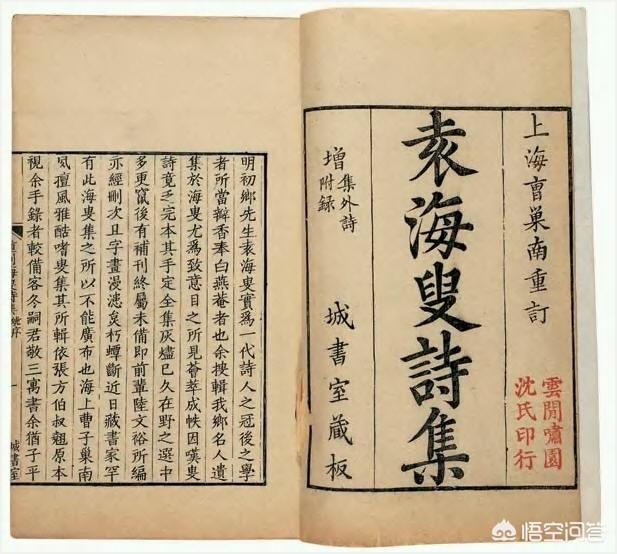 上海曺巢南重訂
袁海叟詩集
增集外詩附錄
城書室藏板
雲間嘯園
沈氏印行
明初鄉先生袁海叟實爲一代詩人之冠後之學
者所當瓣香奉白燕菴者也余搜輯我鄉名人遺
集於海叟尤爲致意目之所見薈萃成帙因嘆叟
詩竟乏完本其手定全集灰燼已久在野之選中
多更竄後有補刊終屬未備即前輩陸文裕所編
亦經刪次且字畫漫漶矣朽蟫斷近日藏書家罕
有此海叟集之所以不能廣布也海上曹子巢南
夙擅風雅酷嗜叟集其所輯依張方伯叔翹原本
視余手錄者較備客冬嗣君敬三寓書余猶子平
序 一 城書室
悟空问答